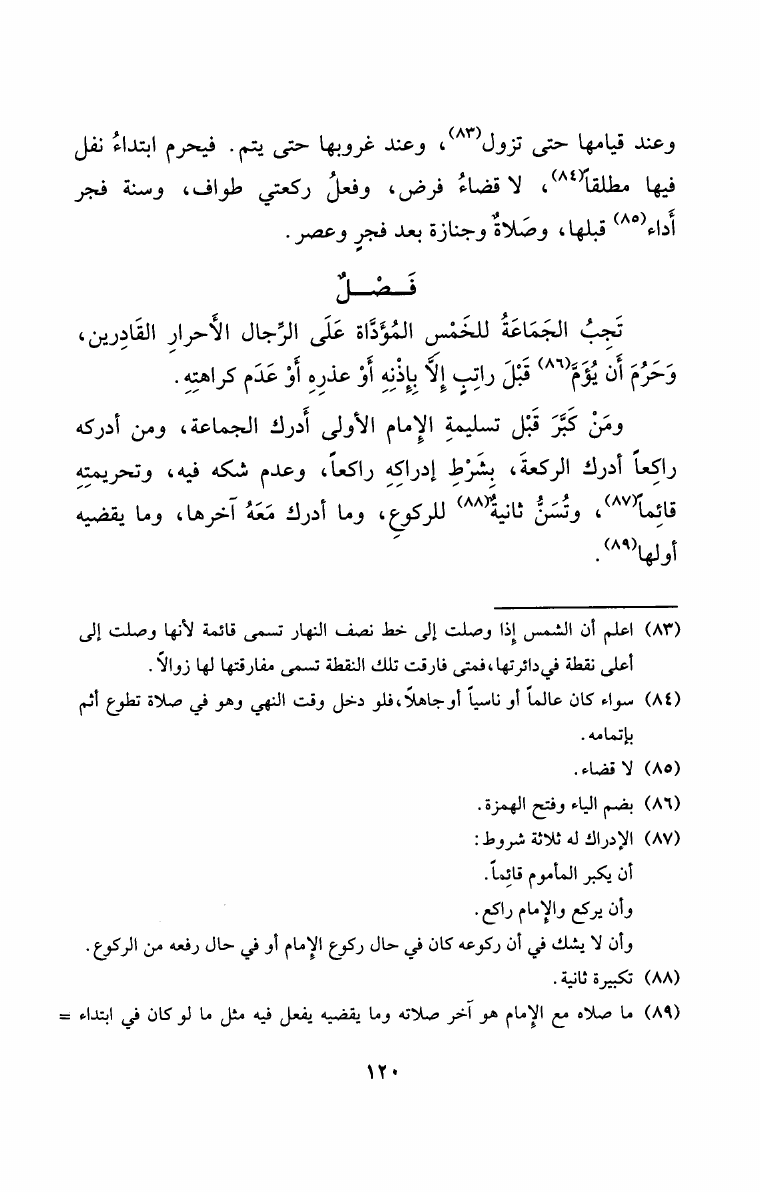 وعند قيامها حتى تزول(٨٣)، وعند غروبها حتى يتم. فيحرم ابتداءُ نفل
فيها مطلقاً(٨٤)، لا قضاءُ فرض، وفعلُ ركعتي طواف، وسنة فجر
أَداء(٨٥) قبلها، وصَلاةٌ وجنازة بعد فجرٍ وعصر.
فَـصْـلٌ
تَجِبُ الجَمَاعَةُ للخَمْسِ المُؤَدَّاة عَلَى الرِّجال الأَحرارِ القَادِرين،
وَحَرُمَ أَن يُؤَمَّ(٨٦) قَبْلَ راتِبٍ إِلاَّ بِإِذْنِهِ أَوْ عذرِهِ أَوْ عَدَم كراهتِهِ.
ومَنْ كَبَّرَ قَبْل تسليمةِ الإمام الأولى أَدرك الجماعة، ومن أدركه
راكِعاً أدرك الركعةَ، بِشَرْطِ إدراكِهِ راكعاً، وعدم شكه فيه، وتحريمتِهِ
قائِماً(٨٧)، وتُسَنُّ ثانيةٌ(٨٨) للركوعِ، وما أدرك مَعَهُ آخرها، وما يقضيه
أولها(٨٩).
(٨٣) اعلم أن الشمس إذا وصلت إلى خط نصف النهار تسمى قائمة لأنها وصلت إلى
أعلى نقطة في دائرتها، فمتى فارقت تلك النقطة تسمى مفارقتها لها زوالاً.
(٨٤) سواء كان عالماً أو ناسياً أو جاهلاً، فلو دخل وقت النهي وهو في صلاة تطوع أثم
بإتمامه.
(٨٥) لا قضاء.
(٨٦) بضم الياء وفتح الهمزة.
(٨٧) الإدراك له ثلاثة شروط:
أن يكبر المأموم قائِماً.
وأن يركع والإمام راكع.
وأن لا يشك في أن ركوعه كان في حال ركوع الإمام أو في حال رفعه من الركوع.
(٨٨) تكبيرة ثانية.
(٨٩) ما صلاه مع الإمام هو آخر صلاته وما يقضيه يفعل فيه مثل ما لو كان في ابتداء =
١٢٠